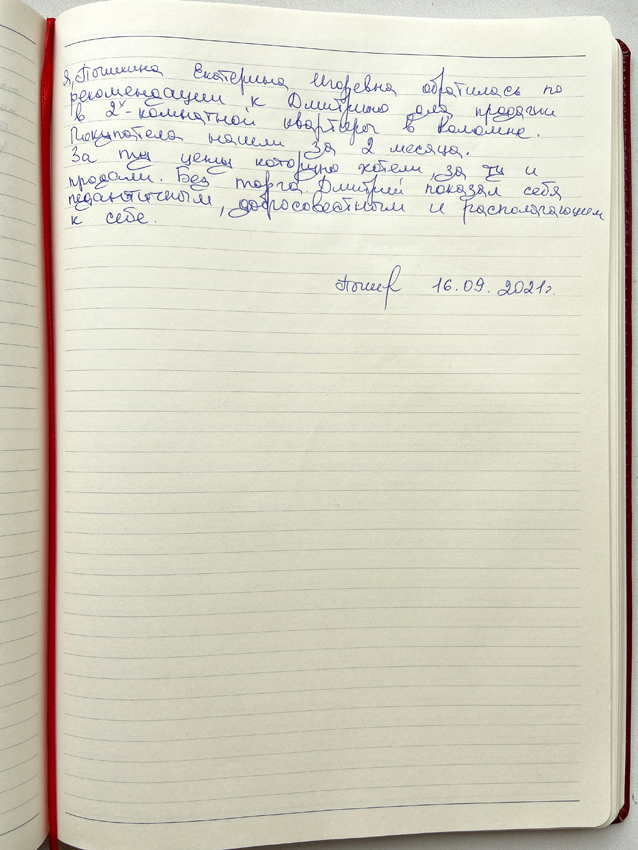 Я, Пошкина Екатерина Игоревна обратилась по
рекомендации к Дмитрию для продажи
в 2х-комнатной квартиры в Коломне.
Покупателя нашли за 2 месяца.
За ту цену которую хотели, за ту и
продали. Без торга. Дмитрий показал себя
педантичным, добросовестным и располагающем
к себе.
16.09.2021г.